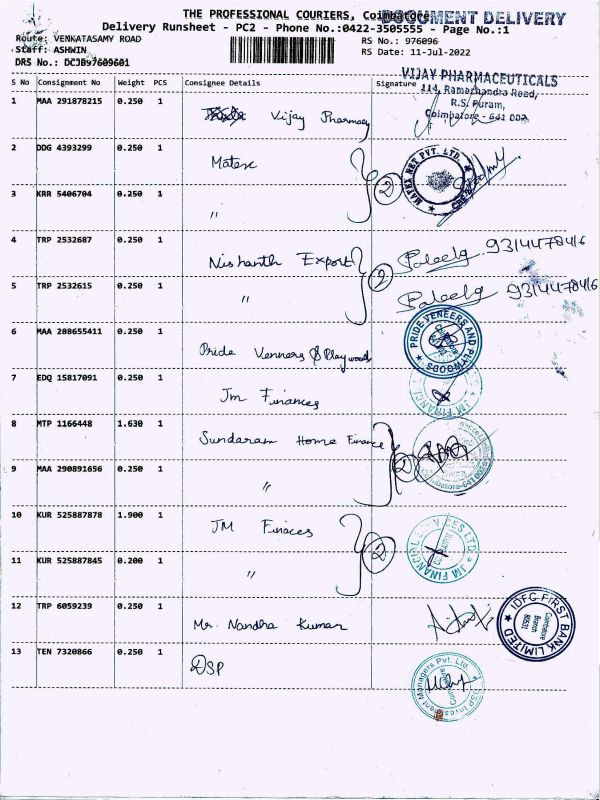 THE PROFESSIONAL COURIERS, Coimbatore
DOCUMENT DELIVERY
Delivery Runsheet - PC2 - Phone No.:0422-3505555 - Page No.:1
Route: VENKATASAMY ROAD
RS No.: 976096
Staff: ASHWIN
RS Date: 11-Jul-2022
DRS No.: DCJB97609601
S No Consignment No Weight PCS Consignee Details Signature
VIJAY PHARMACEUTICALS
114, Ramachandra Road,
R.S. Puram,
Coimbatore - 641 002.
1 MAA 291878215 0.250 1 Vijay Pharmacy
2 DDG 4393299 0.250 1 Matex
MATEX NET PVT. LTD.
2
3 KRR 5406704 0.250 1 "
4 TRP 2532687 0.250 1 Nishanth Export 9314478416
2
5 TRP 2532615 0.250 1 " 9314478416
6 MAA 288655411 0.250 1 Pride Venners & Playwoods
PRIDE VENEERS AND PLYWOODS
7 EDQ 15817091 0.250 1 Jm Finances
JM FINANCIAL
8 MTP 1166448 1.630 1 Sundaram Home Finance
2
9 MAA 290891656 0.250 1 "
10 KUR 525887878 1.900 1 JM Finaces
JM FINANCIAL SERVICES LTD
2
11 KUR 525887845 0.200 1 "
12 TRP 6059239 0.250 1 Mr. Nandha Kumar
IDFC FIRST BANK LIMITED
Coimbatore
Branch
13 TEN 7320866 0.250 1 DSP
DSP Investment Managers Pvt. Ltd.